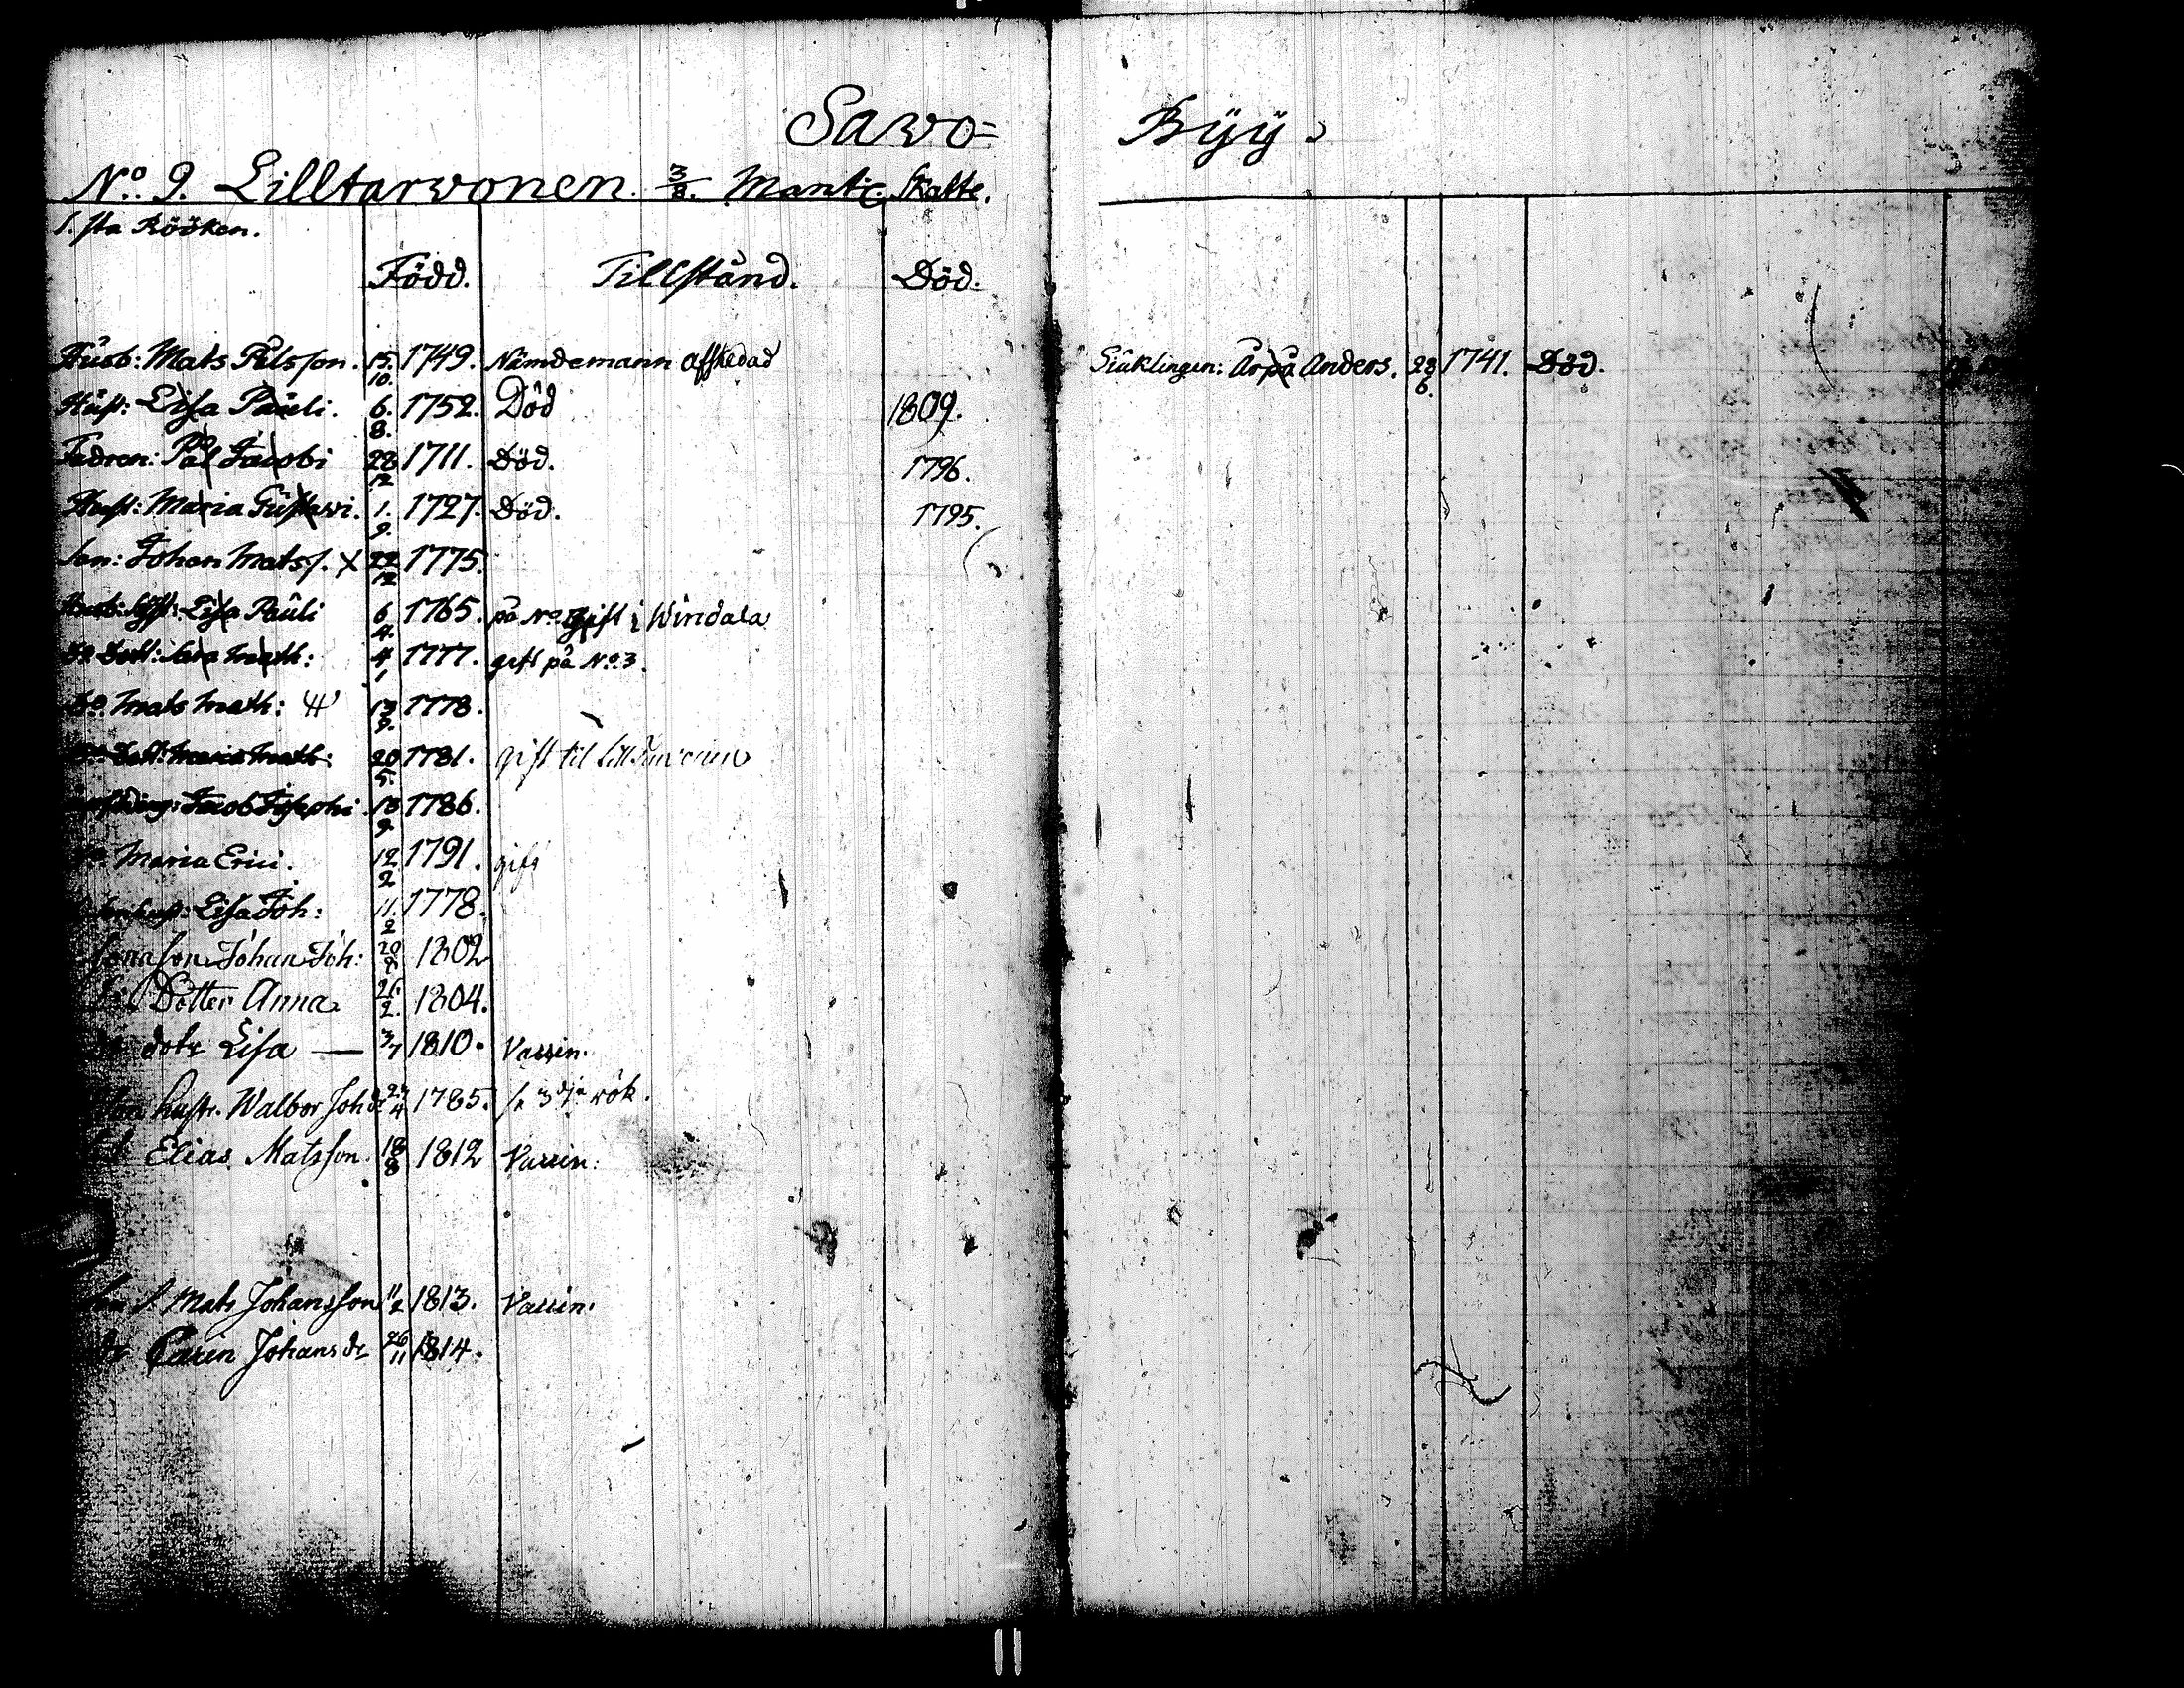 Sawo= Byy.
No: 9. Lilltarvonen. 3/8. Mantl Skatte.
1. sta Rööken.
Född. Tillstånd. Död.
Husb: Mats Pålsson. 15/10. 1749. Nämdemann afskedad
Hust: Lisa Pauli. 6./8. 1752. Död 1809.
Fadren: Pål Jacobi 28/12 1711. Död. 1796.
Hust: Maria Gustavi. 1./9. 1727. Död. 1795.
Son: Johan Matss. X 22/12 1775.
Lisa Pauli 6/4. 1765. på No gift i Wirdala
Dott: Math: 4/1 1777. gift på No 3.
Do Mats Math: 13/9. 1778.
Dott: Maria Math: 20/5. 1781. gift til
Jacob Josephi. 18/9. 1786.
Maria Erici. 12/2 1791. gift
Lisa Joh: 11./2 1778.
Sonason Johan Joh: 1802
Dotter Anna 26./2. 1804.
dotr Lisa — 3/7 1810. Vaccin.
hustr. Walbor Joh dr 27/4 1785. fr 3dja rök.
Elias Matsson. 18/8 1812 Vaccin:
S. Mats Johansson 11/2 1813. Vaccin.
dr Carin Johans dr 26/11 1814.
Siuklingen: Anders. 28/6. 1741. Död.